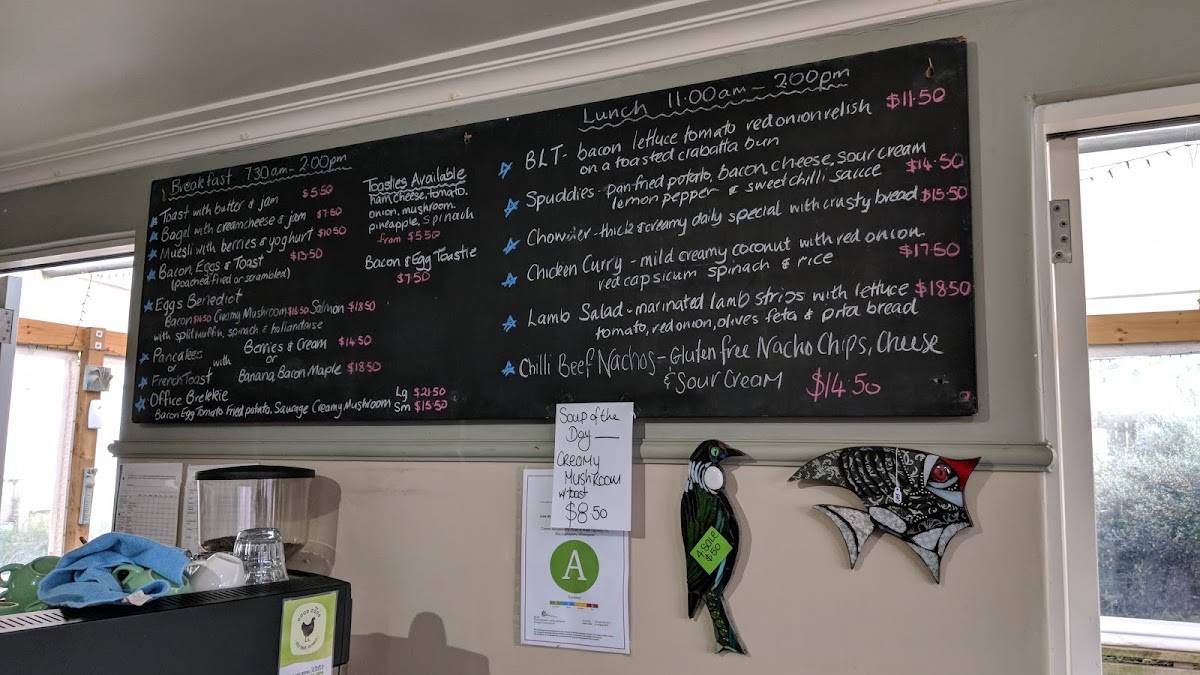 Breakfast 7.30am - 2.00pm
Toast with butter & jam $5.50
Bagel with creamcheese & jam $7.50
Muesli with berries & yoghurt $10.50
Bacon Eggs & Toast $13.50
(poached, fried or scrambled)
Eggs Benedict
Bacon $14.50 Creamy Mushroom $16.50 Salmon $18.50
with split muffin, spinach & hollandaise
Pancakes with Berries & Cream $14.50
or or
French Toast Banana, Bacon Maple $18.50
Office Brekekie Lg $21.50
Bacon Egg Tomato Fried potato, Sausage Creamy Mushroom Sm $15.50
Toasties Available
ham, cheese, tomato,
onion, mushroom,
pineapple, spinach
from $5.50
Bacon & Egg Toastie
$7.50
Lunch 11.00am - 2.00pm
BLT - bacon lettuce tomato red onion relish $11.50
on a toasted ciabatta bun
Spuddies - pan fried potato, bacon, cheese, sour cream $14.50
lemon pepper & sweet chilli sauce
Chowder - thick & creamy daily special with crusty bread $15.50
Chicken Curry - mild creamy coconut with red onion $17.50
red capsicum spinach & rice
Lamb Salad - marinated lamb strips with lettuce $18.50
tomato, red onion, olives feta & pita bread
Chilli Beef Nachos - Gluten free Nacho Chips, Cheese
& Sour Cream $14.50
Soup of the
Day —
Creamy
Mushroom
w/ toast
$8.50
A
4 SALE
$50